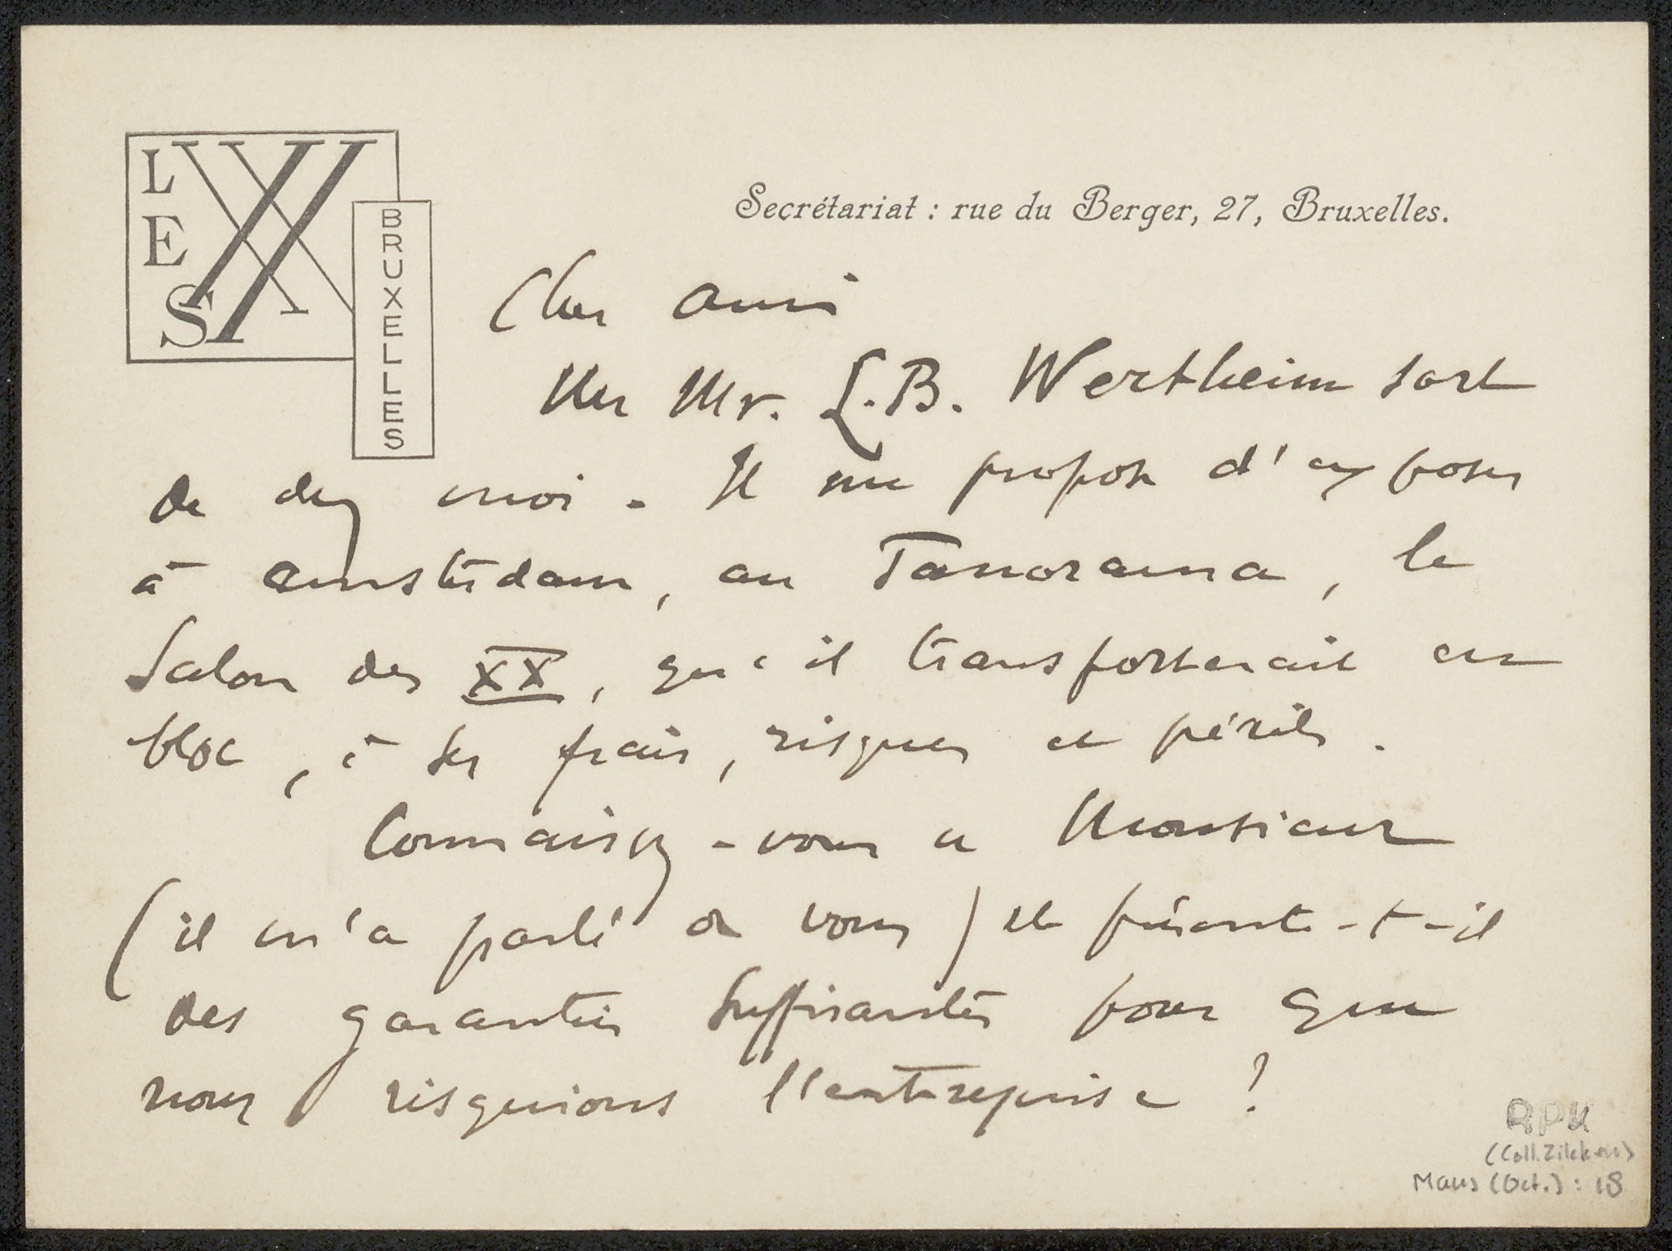 LES XX
BRUXELLES
Secrétariat : rue du Berger, 27, Bruxelles.
Cher ami
Un Mr. L.B. Wertheim sort
de chez moi. Il me propose d'exposer
à Amsterdam, au Panorama, le
Salon des XX, qu'il transporterait en
bloc, à ses frais, risques et périls.
Connaissez-vous ce Monsieur
(il m'a parlé de vous) et présente-t-il
des garanties suffisantes pour que
nous risquions l'entreprise ?
RPK
(Coll. Zilcken)
Maus (Oct.) : 18